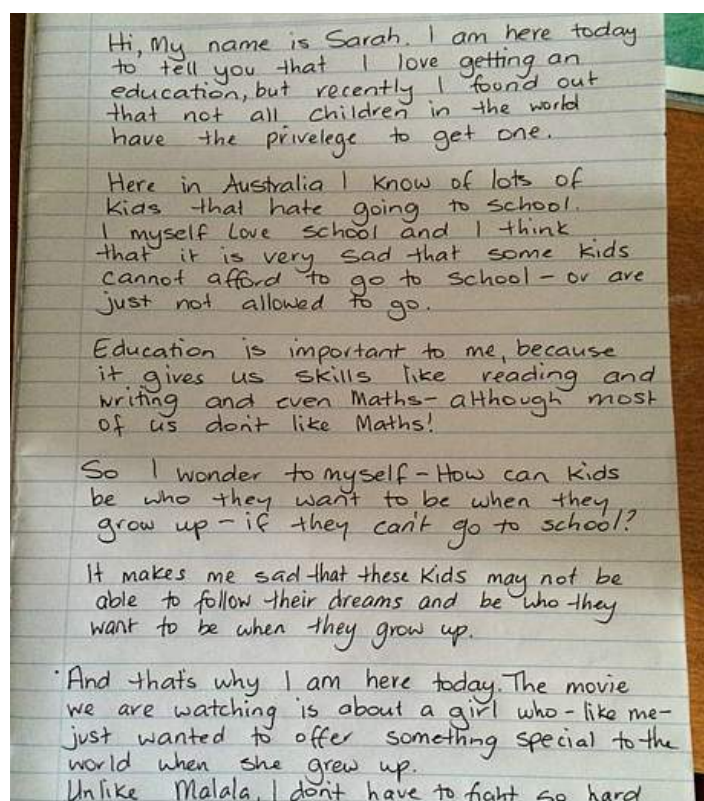 Hi, My name is Sarah. I am here today
to tell you that I love getting an
education, but recently I found out
that not all children in the world
have the privelege to get one.
Here in Australia I know of lots of
kids that hate going to school.
I myself love school and I think
that it is very sad that some kids
cannot afford to go to school - or are
just not allowed to go.
Education is important to me, because
it gives us skills like reading and
writing and even Maths - although most
of us don't like Maths!
So I wonder to myself - How can kids
be who they want to be when they
grow up - if they can't go to school?
It makes me sad that these kids may not be
able to follow their dreams and be who they
want to be when they grow up.
And that's why I am here today. The movie
we are watching is about a girl who - like me -
just wanted to offer somethng special to the
world when she grew up.
Unlike Malala, I don't have to fight so hard